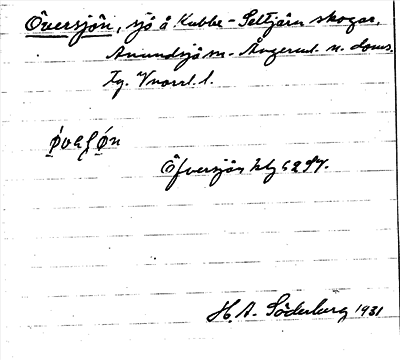 Översjön, sjö å Kubbe-Seltjärn skogar,
Anundsjö sn. Ångerml. n. doms.
Tg. Vnorrl. l.
Öfversjön ktg 62
H. A. Söderberg 1931